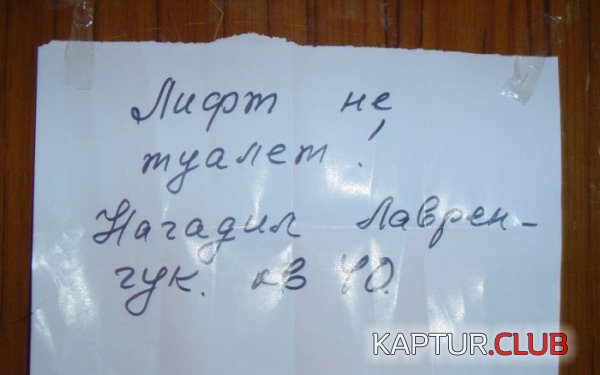 Лифт не
туалет!
Нагадил Лаврен-
чук. кв 40.
KAPTUR.CLUB